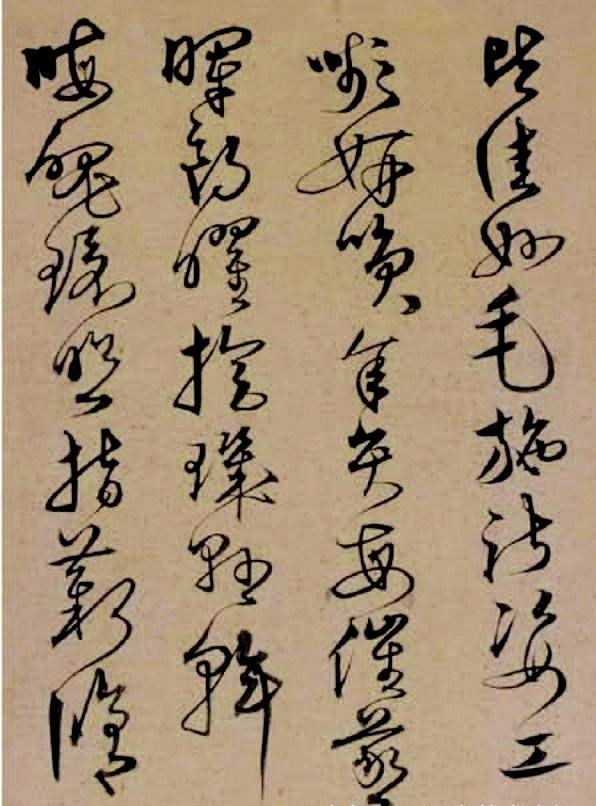 皆佳妙毛施淑姿工
嚬妍笑年矢每催羲
暉朗曜旋璣懸斡
晦魄環照指薪修